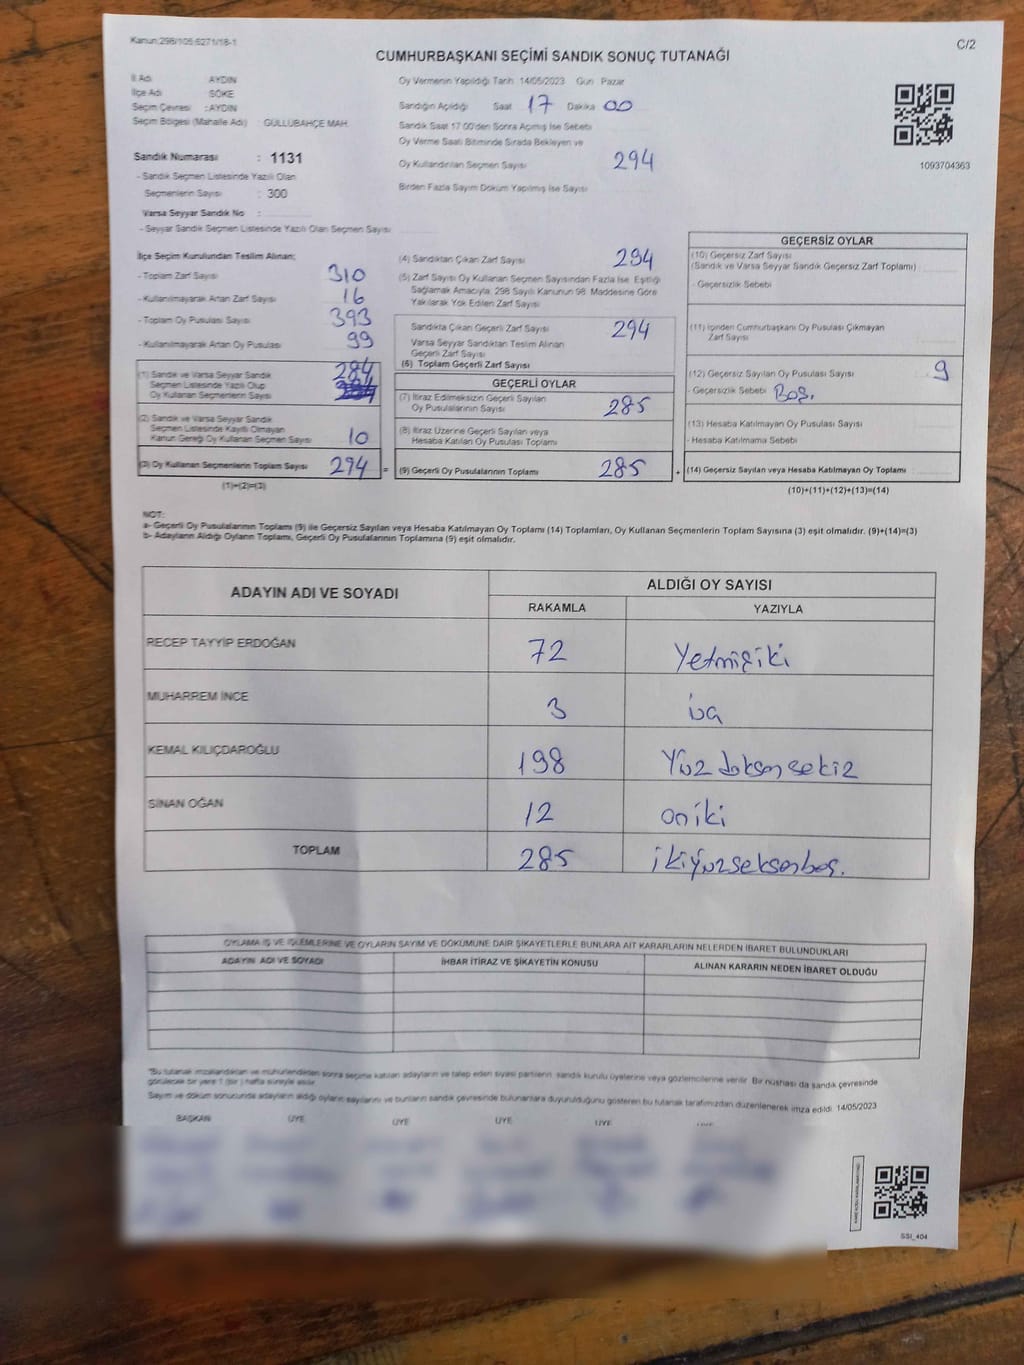 Kanun:298/105;6271/18-1
C/2
CUMHURBAŞKANI SEÇİMİ SANDIK SONUÇ TUTANAĞI
İl Adı AYDIN
İlçe Adı SÖKE
Seçim Çevresi : AYDIN
Seçim Bölgesi (Mahalle Adı) : GÜLLÜBAHÇE MAH.
Sandık Numarası : 1131
- Sandık Seçmen Listesinde Yazılı Olan
Seçmenlerin Sayısı : 300
Varsa Seyyar Sandık No :
- Seyyar Sandık Seçmen Listesinde Yazılı Olan Seçmen Sayısı
Oy Vermenin Yapıldığı Tarih 14/05/2023 Gün Pazar
Sandığın Açıldığı Saat 17 Dakika 00
Sandık Saat 17.00'den Sonra Açılmış İse Sebebi
Oy Verme Saati Bitiminde Sırada Bekleyen ve
Oy Kullandırılan Seçmen Sayısı 294
Birden Fazla Sayım Döküm Yapılmış İse Sayısı
1093704363
İlçe Seçim Kurulundan Teslim Alınan;
- Toplam Zarf Sayısı 310
- Kullanılmayarak Artan Zarf Sayısı 16
- Toplam Oy Pusulası Sayısı 393
- Kullanılmayarak Artan Oy Pusulası 99
(1) Sandık ve Varsa Seyyar Sandık 284
Seçmen Listesinde Yazılı Olup
Oy Kullanan Seçmenlerin Sayısı
(2) Sandık ve Varsa Seyyar Sandık
Seçmen Listesinde Kayıtlı Olmayan
Kanun Gereği Oy Kullanan Seçmen Sayısı 10
(3) Oy Kullanan Seçmenlerin Toplam Sayısı 294 =
(1)+(2)=(3)
(4) Sandıktan Çıkan Zarf Sayısı 294
(5) Zarf Sayısı Oy Kullanan Seçmen Sayısından Fazla İse, Eşitliği
Sağlamak Amacıyla, 298 Sayılı Kanunun 98. Maddesine Göre
Yakılarak Yok Edilen Zarf Sayısı
Sandıkta Çıkan Geçerli Zarf Sayısı 294
Varsa Seyyar Sandıktan Teslim Alınan
Geçerli Zarf Sayısı
(6) Toplam Geçerli Zarf Sayısı
GEÇERLİ OYLAR
(7) İtiraz Edilmeksizin Geçerli Sayılan
Oy Pusulalarının Sayısı 285
(8) İtiraz Üzerine Geçerli Sayılan veya
Hesaba Katılan Oy Pusulası Toplamı
(9) Geçerli Oy Pusulalarının Toplamı 285 +
GEÇERSİZ OYLAR
(10) Geçersiz Zarf Sayısı
(Sandık ve Varsa Seyyar Sandık Geçersiz Zarf Toplamı)
- Geçersizlik Sebebi
(11) İçinden Cumhurbaşkanı Oy Pusulası Çıkmayan
Zarf Sayısı
(12) Geçersiz Sayılan Oy Pusulası Sayısı 9
- Geçersizlik Sebebi Boş.
(13) Hesaba Katılmayan Oy Pusulası Sayısı
- Hesaba Katılmama Sebebi
(14) Geçersiz Sayılan veya Hesaba Katılmayan Oy Toplamı
(10)+(11)+(12)+(13)=(14)
NOT:
a- Geçerli Oy Pusulalarının Toplamı (9) ile Geçersiz Sayılan veya Hesaba Katılmayan Oy Toplamı (14) Toplamları, Oy Kullanan Seçmenlerin Toplam Sayısına (3) eşit olmalıdır. (9)+(14)=(3)
b- Adayların Aldığı Oyların Toplamı, Geçerli Oy Pusulalarının Toplamına (9) eşit olmalıdır.
ADAYIN ADI VE SOYADI
ALDIĞI OY SAYISI
RAKAMLA YAZIYLA
RECEP TAYYİP ERDOĞAN 72 Yetmişiki
MUHARREM İNCE 3 üç
KEMAL KILIÇDAROĞLU 198 Yüz doksan sekiz
SİNAN OĞAN 12 oniki
TOPLAM 285 ikiyüzseksenbeş.
OYLAMA İŞ VE İŞLEMLERİNE VE OYLARIN SAYIM VE DÖKÜMÜNE DAİR ŞİKAYETLERLE BUNLARA AİT KARARLARIN NELERDEN İBARET BULUNDUKLARI
ADAYIN ADI VE SOYADI İHBAR İTİRAZ VE ŞİKAYETİN KONUSU ALINAN KARARIN NEDEN İBARET OLDUĞU
"Bu tutanak imzalandıktan ve mühürlendikten sonra seçime katılan adayların ve talep eden siyasi partilerin sandık kurulu üyelerine veya gözlemcilerine verilir. Bir nüshası da sandık çevresinde
görülecek bir yere 1 (bir) hafta süreyle asılır
Sayım ve döküm sonucunda adayların aldığı oyların sayılarını ve bunların sandık çevresinde bulunanlara duyurulduğunu gösteren bu tutanak tarafımızdan düzenlenerek imza edildi. 14/05/2023
BAŞKAN ÜYE ÜYE ÜYE ÜYE ÜYE
SSI_404